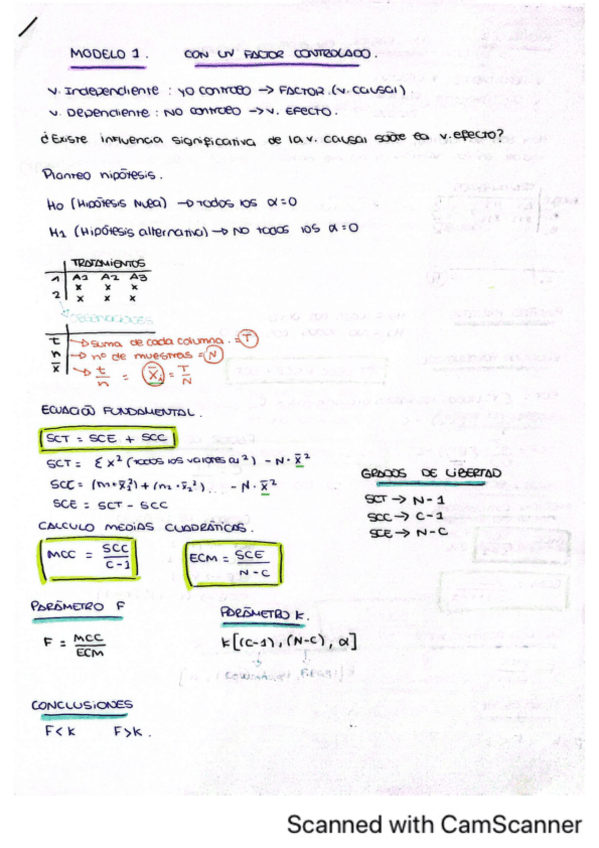 MODELO 1. CON UN FACTOR CONTROLADO.
V. Independiente : YO CONTROLO → FACTOR. (V. CAUSAL)
V. Dependiente : NO CONTROLO → V. EFECTO.
¿Existe influencia significativa de la v. causal sobre la v. efecto?
Planteo hipótesis.
H0 (Hipótesis Nula) → Todos los α=0
H1 (Hipótesis alternativa) → NO todos los α=0
TRATAMIENTOS
1 A1 A2 A3
x x x
2 x x x
OBSERVACIONES
t → suma de cada columna. = T
n → nº de muestras = N
x̄ → t/n = x̄i = T/N
ECUACIÓN FUNDAMENTAL.
SCT = SCE + SCC
SCT = Σ x² (todos los valores al ²) - N · x̄²
SCC = (n1 · x̄1²) + (n2 · x̄2²) ... - N · x̄²
SCE = SCT - SCC
GRADOS DE LIBERTAD
SCT → N-1
SCC → C-1
SCE → N-C
CALCULO MEDIAS CUADRÁTICAS.
MCC = SCC/C-1
ECM = SCE/N-C
PARÁMETRO F
F = MCC/ECM
PARÁMETRO K.
K[(C-1), (N-C), α]
CONCLUSIONES
F<K F>K.
Scanned with CamScanner